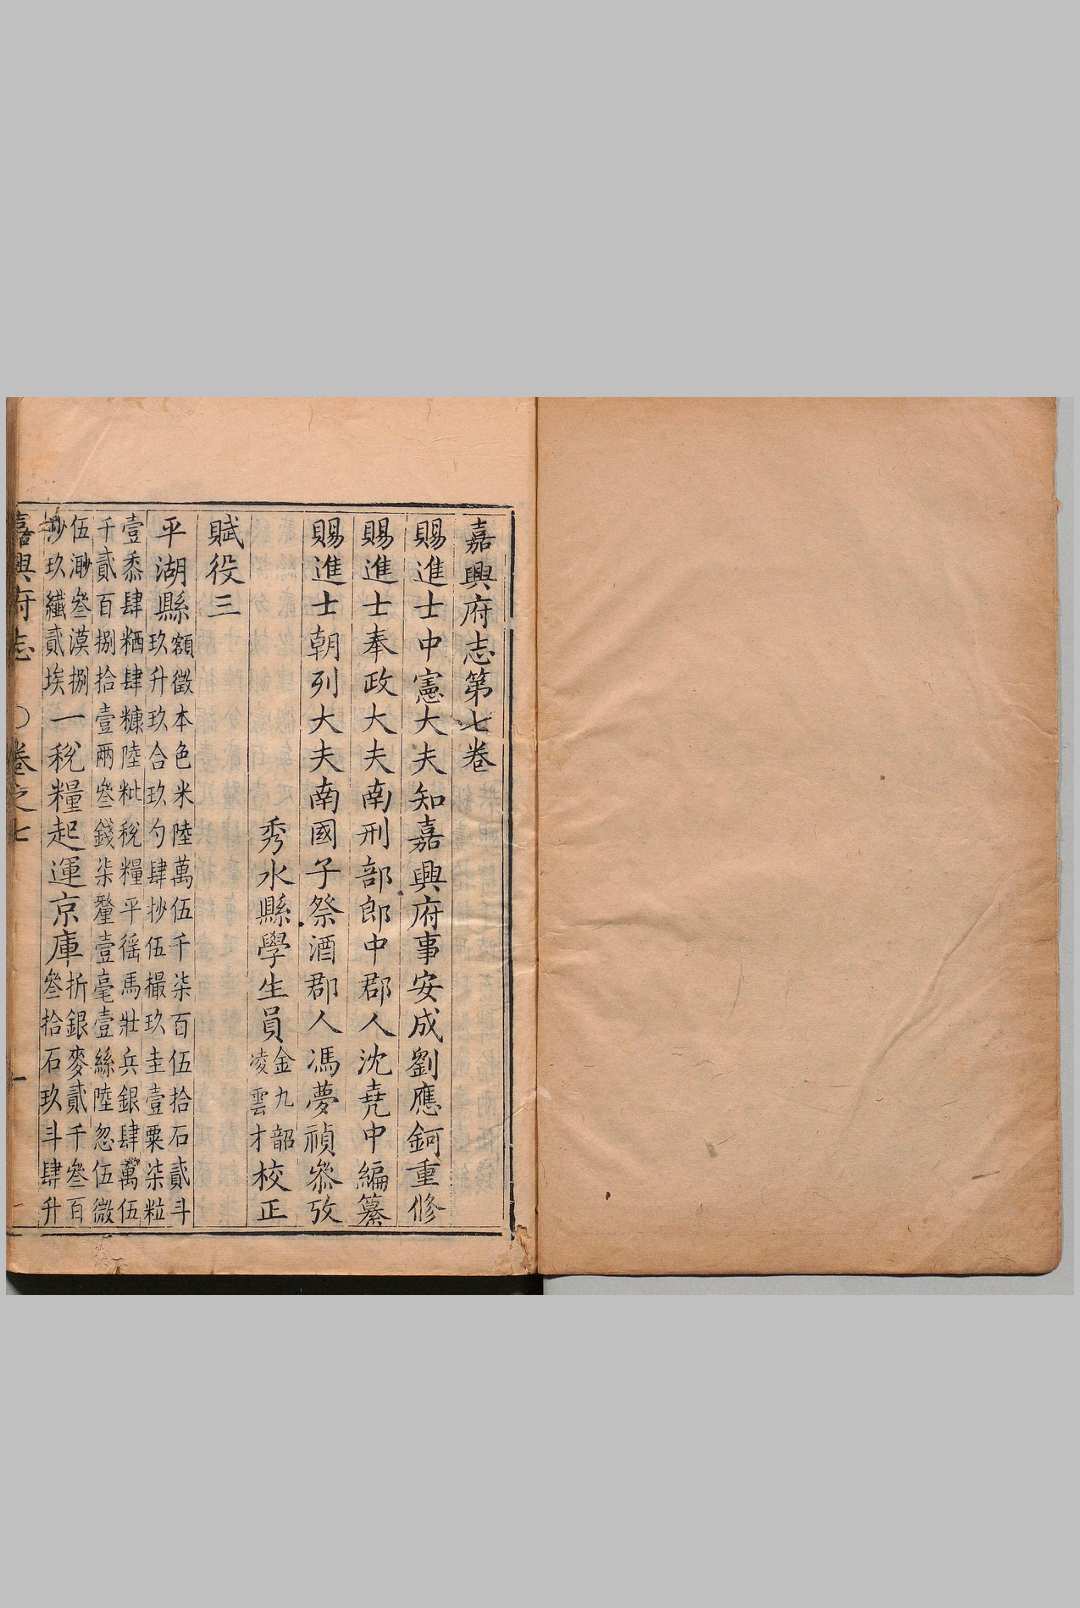 嘉興府志第七卷
賜進士中憲大夫知嘉興府事安成劉應鈳重修
賜進士奉政大夫南刑部郎中郡人沈堯中編纂
賜進士朝列大夫南國子祭酒郡人馮夢禎叅攷
秀水縣學生員金九韶凌雲才校正
賦役三
平湖縣額徵本色米陸萬伍千柒百伍拾石貳斗
玖升玖合玖勺肆抄伍撮玖圭壹粟柒粒
壹黍肆粞肆糠陸粃稅糧平徭馬壯兵銀肆萬伍
千貳百捌拾壹兩叄錢柒釐壹毫壹絲陸忽伍微
伍渺叄漠捌
玖纖貳埃一稅糧起運京庫折銀麥貳千叄百
叄拾石玖斗肆升
嘉興府志 〇卷之七 一